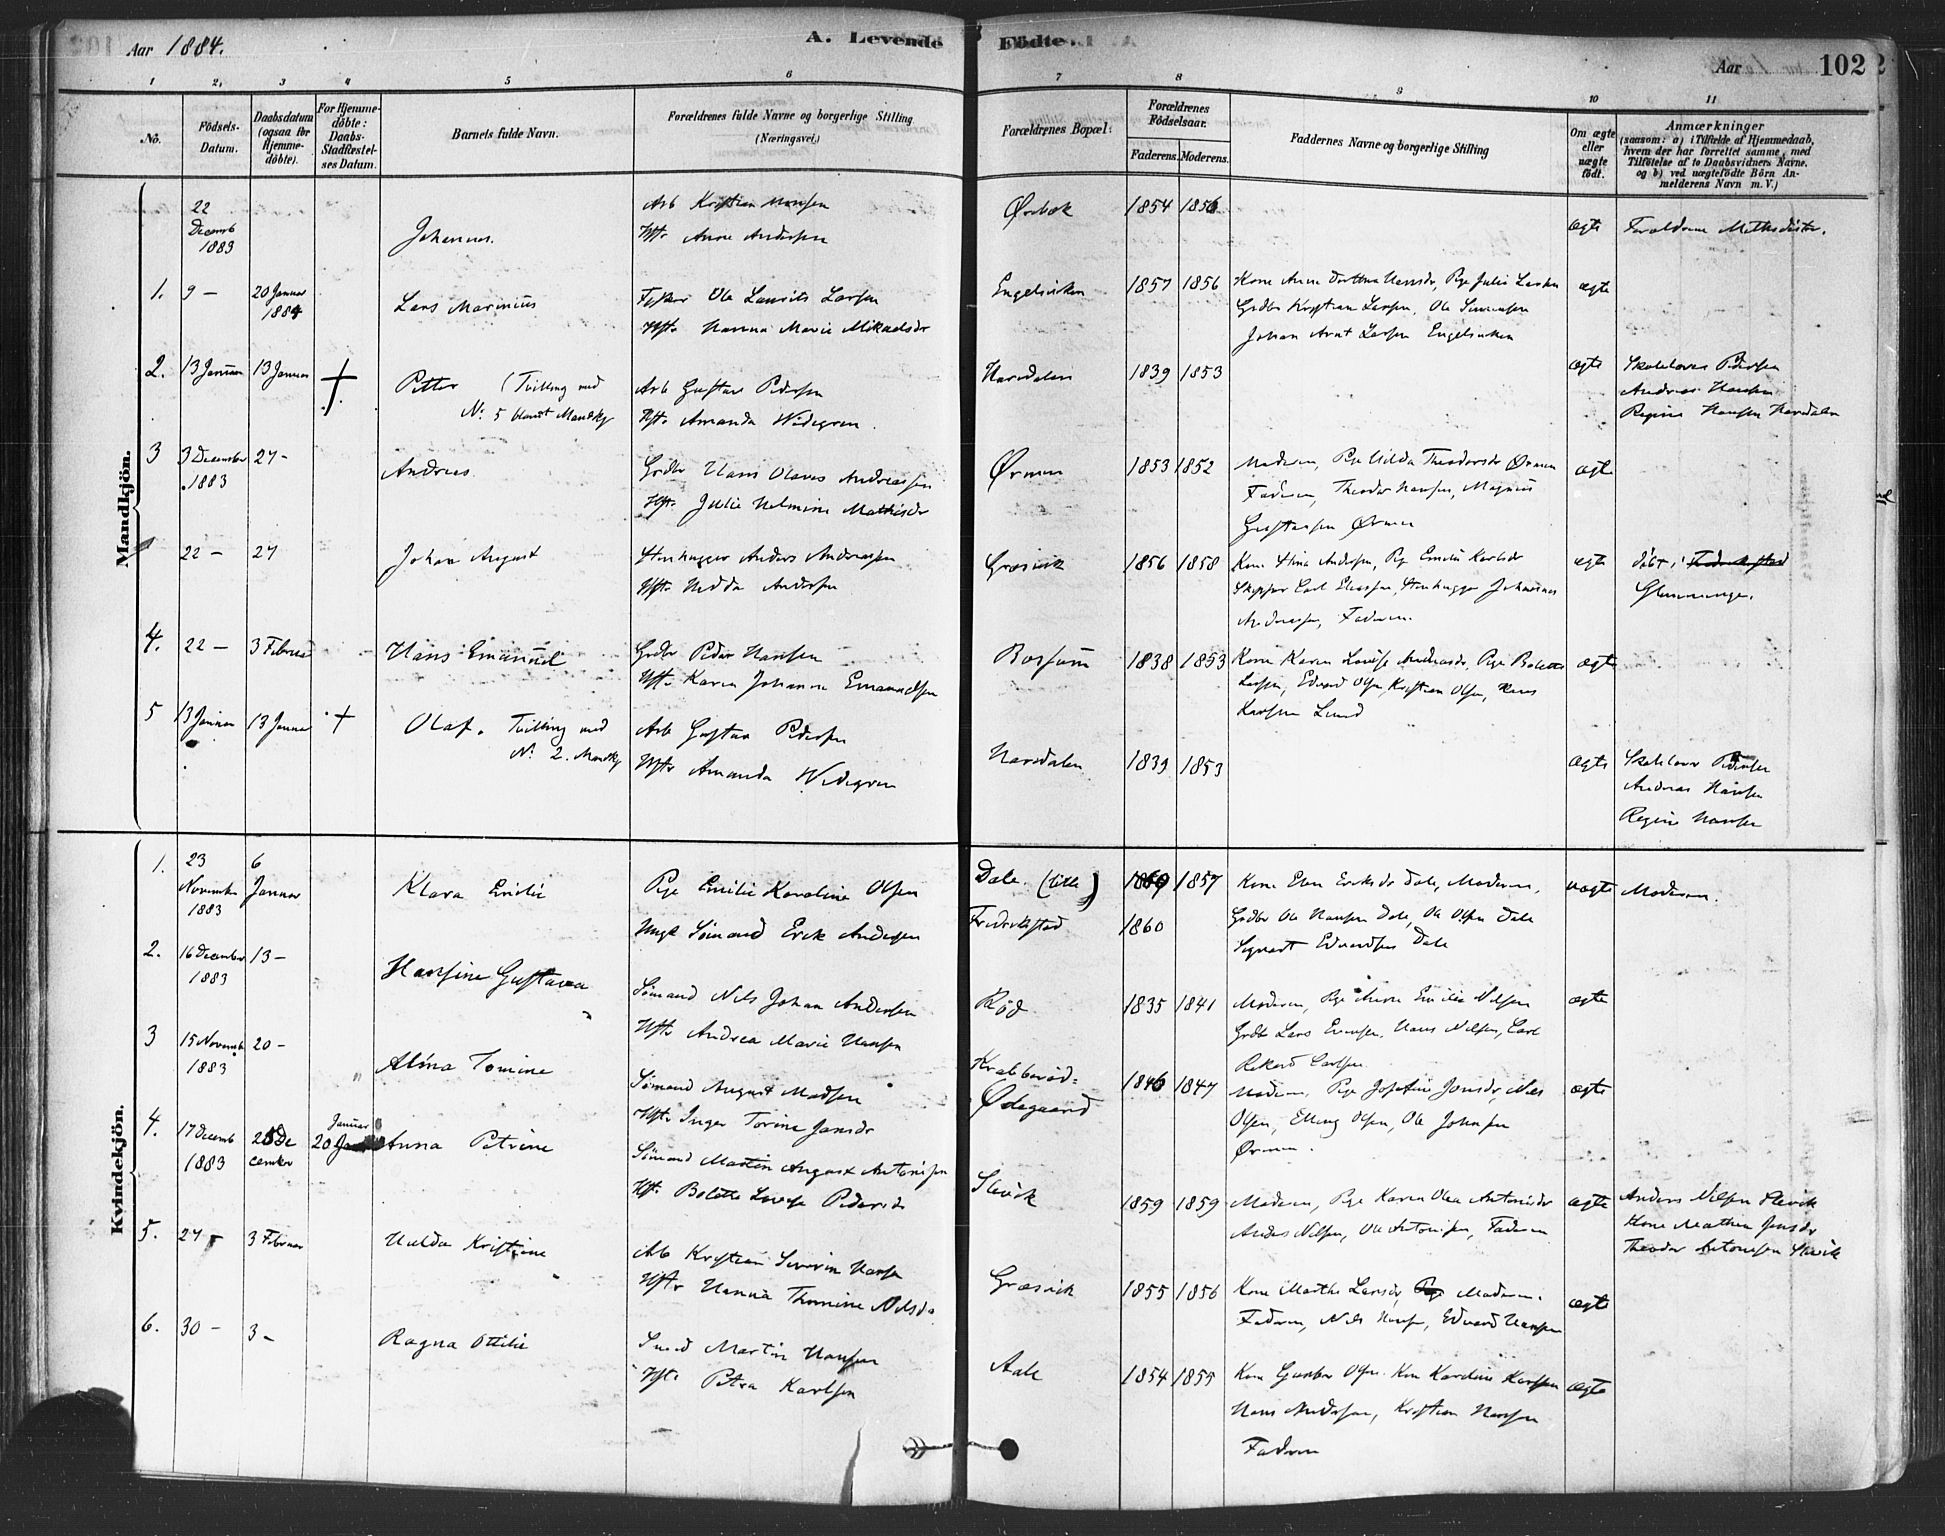 Aar 1884.
A. Levende Födte.
Aar
102
1
2.
3
4
5
6
7
8
9
10
11
No.
Födsels-
Datum.
Daabsdatum
(ogsaa for
Hjemme-
döbte).
For Hjemme-
döbte:
Daabs-
Stadfæstel-
ses Datum.
Barnets fulde Navn.
Forældrenes fulde Navne og borgerlige Stilling
(Næringsvei.)
Forældrenes Bopæl.
Forældrenes
Födselsaar.
Faderens.
Moderens.
Faddernes Navne og borgerlige Stilling
Om ægte
eller
uægte
födt.
Anmærkninger
(saasom: a) i Tilfælde af Hjemmedaab,
hvem der har forrettet samme, med
Tilföielse af to Daabsvidners Navne,
og b) ved uægtefödte Börn An-
melderens Navn m. V.)
Mandkjön.
22
Decemb
1883
Johannes.
Arb Kristian Hansen
Hst. Anne Andersen
Ørebæk
1854 1856
ægte
Forældrene Methodister.
1. 9 —
20 Januar
1884
Lars Marinius
Fisker Ole Laurits Larsen
Hst. Hanna Marie Mikaelsdr
Engelsviken
1857 1856
Kone Anne Dorthea Hansdr, Pige Julie Larsen
Grdbr Kristian Larsen, Ole Sørensen
Johan Arnt Larsen Engelsviken
ægte
2. 13 Januar 13 Januar
Petter (Tvilling med
No. 5 blandt Mandkj
Arb Gustav Pedersen
Hst. Amanda Widegren
Narødalen
1839 1853
ægte
Skolelærer Pedersen
Andreas Hansen
Regine Hansen
3 3 December
1883
27 —
Andreas
Grdbr Hans Olaves Andreassen
Hst. Julie Helmine Mathisdr
Ørmen
1853 1852
Moderen, Pige Hilda Theodorsdr Ørmen
Faderen, Theodor Hansen, Magnus
Gustavsen Ørmen
ægte
22 — 27
Johan August
Stenhugger Anders Andreassen
Hst. Hedda Andersen
Græsvik
1856 1858
Kone Stina Andersen, Pige Emilie Karlsdr
Skipper Carl Eliassen, Stenhugger Johannes
Andreassen, Faderen.
ægte
døbt i Fredrikstad
Glemminge.
4. 22 — 3 Februar
Hans Emanuel
Grdbr Peder Hansen
Hst. Karen Johanne Emanuelsen
Bossum
1838 1853
Kone Karen Lovise Andreasdr, Pige Bolette
Larsen, Edvard Olsen, Kristian Olsen, Hans
Karlsen Lund
ægte
5 13 Januar 13 Januar
Olaf. Tvilling med
No. 2. Mandkj
Arb Gustav Pedersen
Hst. Amanda Widegren
1839 1853
ægte
Skolelærer Pedersen
Andreas Hansen
Regine Hansen
Kvindekjön.
1. 23
November
1883
6
Januar
Klara Emilie
Pige Emilie Karoline Olsen
Ungk Sømand Erik Andersen
Dale. (lille)
Fredrikstad
1857
1860
Kone Elen Eriksdr Dale, Moderen,
Grdbr Ole Hansen Dale, Ole Olsen Dale
Sigvart Edvardsen Dale
uægte
Moderen.
2. 16 December
1883
13 —
Hansine Gustava
Sømand Nils Johan Andersen
Hst. Andrea Marie Hansen
Rød
1835 1841
Moderen, Pige Anne Emilie Nilsen
Grdbr Lars Evensen, Hans Nilsen, Carl
Rikard Carlsen
ægte
3 15 Novemb
1883
20 —
Alina Tomine
Sømand August Madsen
Hst. Inger Torine Jansdr
Krabberød=
Ødegaard
1846 1847
Moderen, Pige Josefine Jonsdr, Nils
Olsen, Elling Olsen, Ole Johnsen
Ørmen.
ægte
4. 17 Decemb
1883
25 De
cember
Januar
20
Anna Petrine
Sømand Martin August Antonisen
Hst. Bolette Lovise Pedersdr
Slevik
1859 1859
Moderen, Pige Karen Olea Antonisdr
Anders Nilsen, Ole Antonisen, Faderen
ægte
Anders Nilsen Slevik
Kone Mathea Jensdr
Theodor Antonisen Slevik
5. 27 — 3 Februar
Hulda Kristine
Arb Kristian Severin Hansen
Hst. Hanna Thomine Nilsdr
Græsvik
1855 1856
Kone Marthe Larsdr, Moderen.
Faderen, Nils Hansen, Edvard Hansen
ægte
6. 30 — 3 —
Ragna Ottilie
Smed Martin Hansen
Hst. Petra Karlsen
Aale
1854 1855
Kone Gunhor Olsen. Kone Karoline Karlsen
Hans Andersen, Kristian Hansen
Faderen
ægte